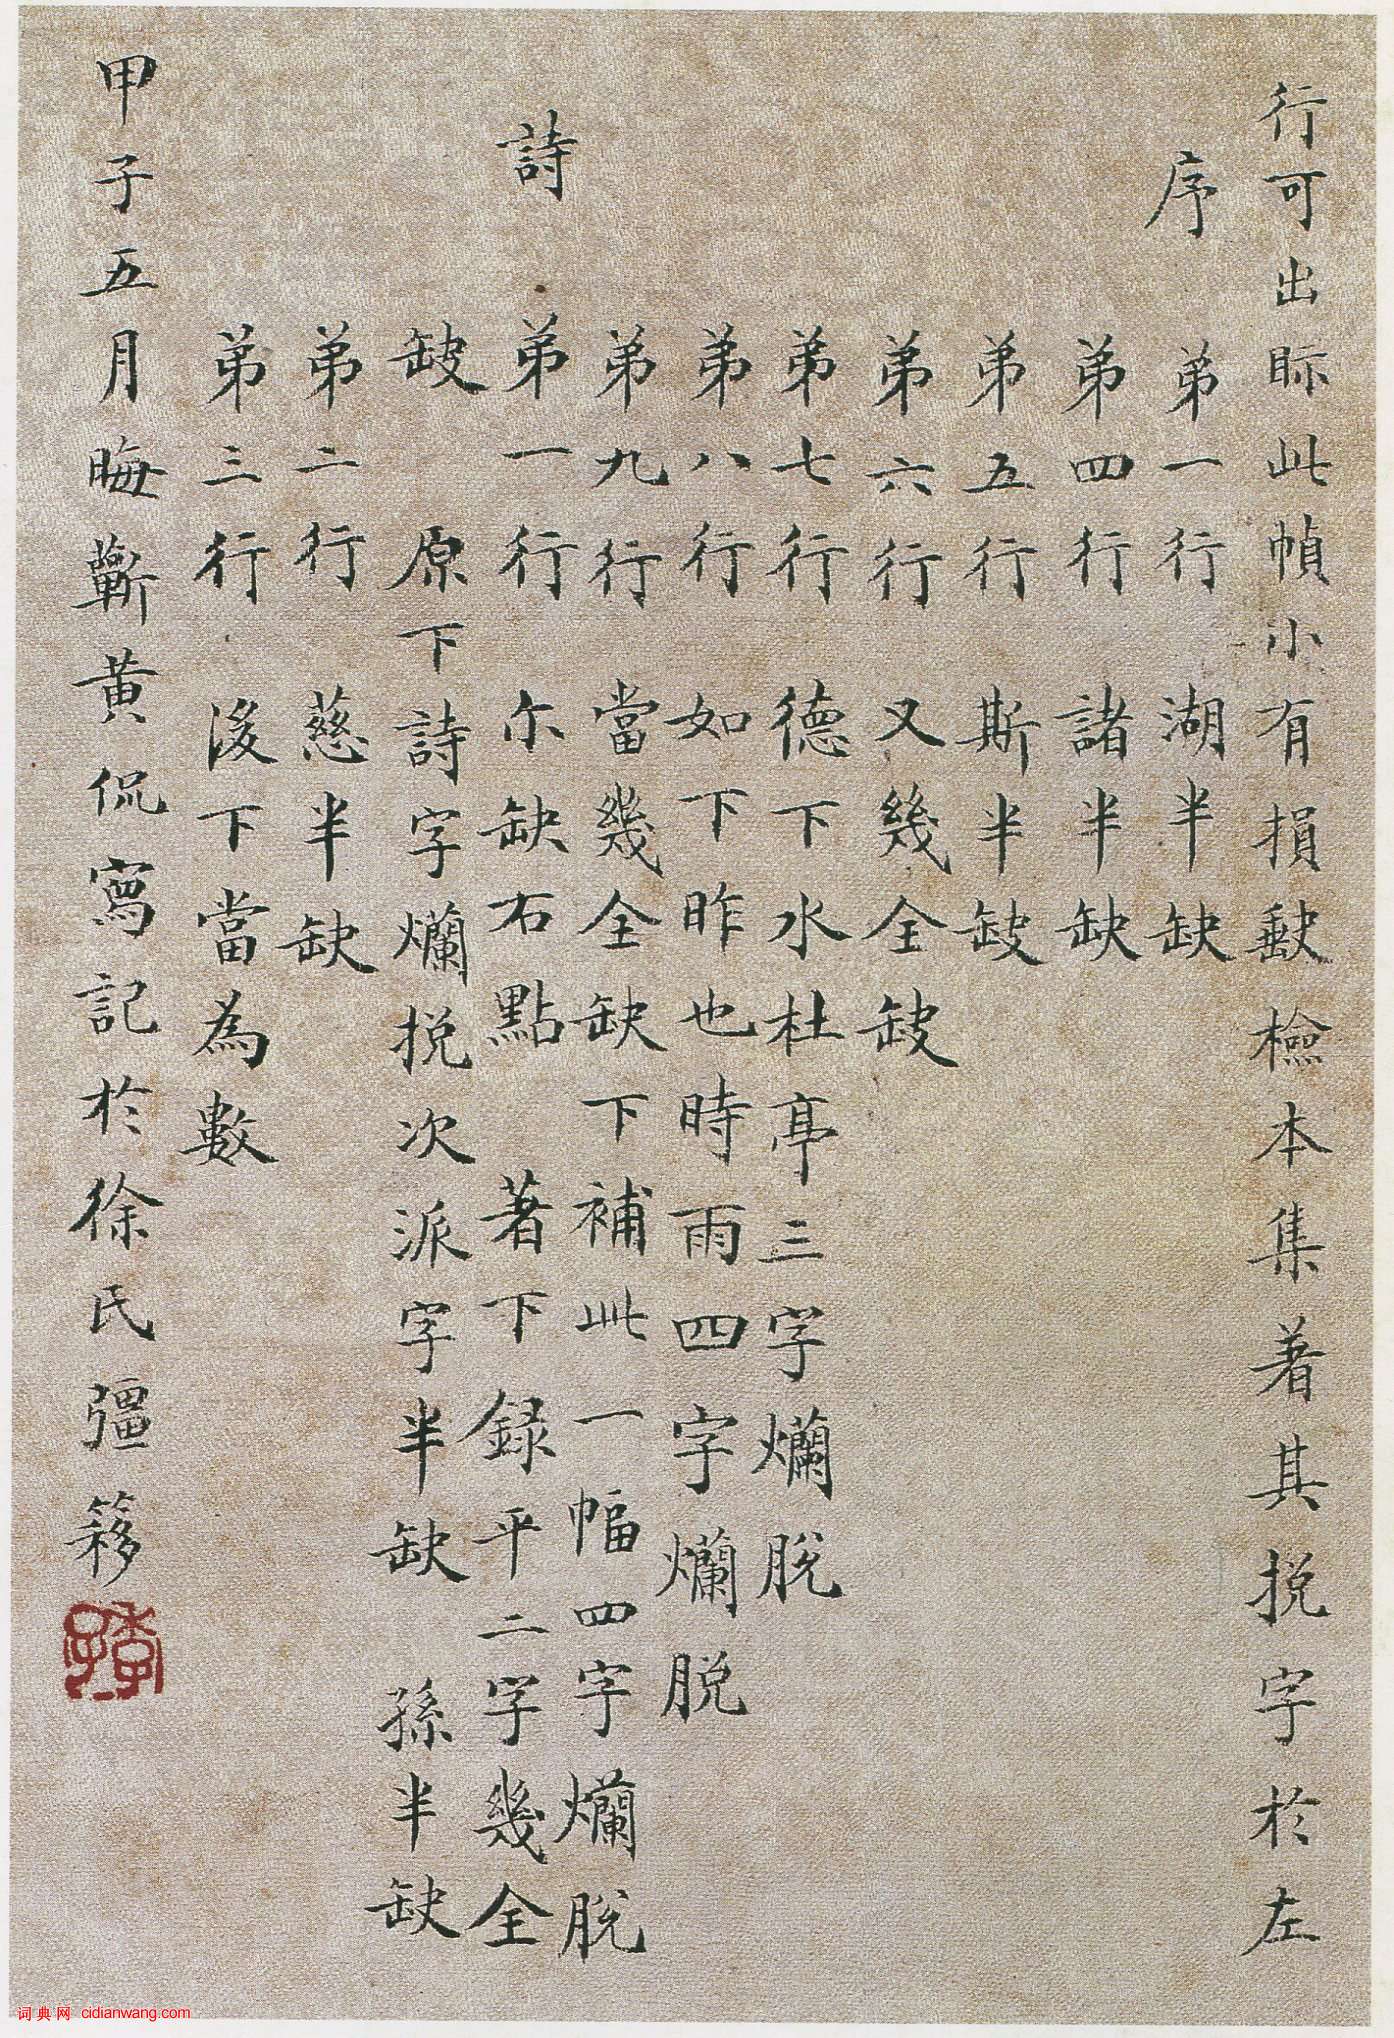 行可出眎此幀小有損缺檢本集著其挩字於左
序
弟一行 湖半缺
弟四行 諸半缺
弟五行 斯半缺
弟六行 又幾全缺
弟七行 德下水杜亭三字爛脫
弟八行 如下昨也時雨四字爛脫
弟九行 當幾全缺下補此一幅四字爛脫
詩
弟一行 尒缺右點 著下錄平二字幾全
缺 原下詩字爛挩次派字半缺 孫半缺
弟二行 慈半缺
弟三行 後下當為數
甲子五月晦蘄黃侃寫記於徐氏彊簃
词典网 cidianwang.com